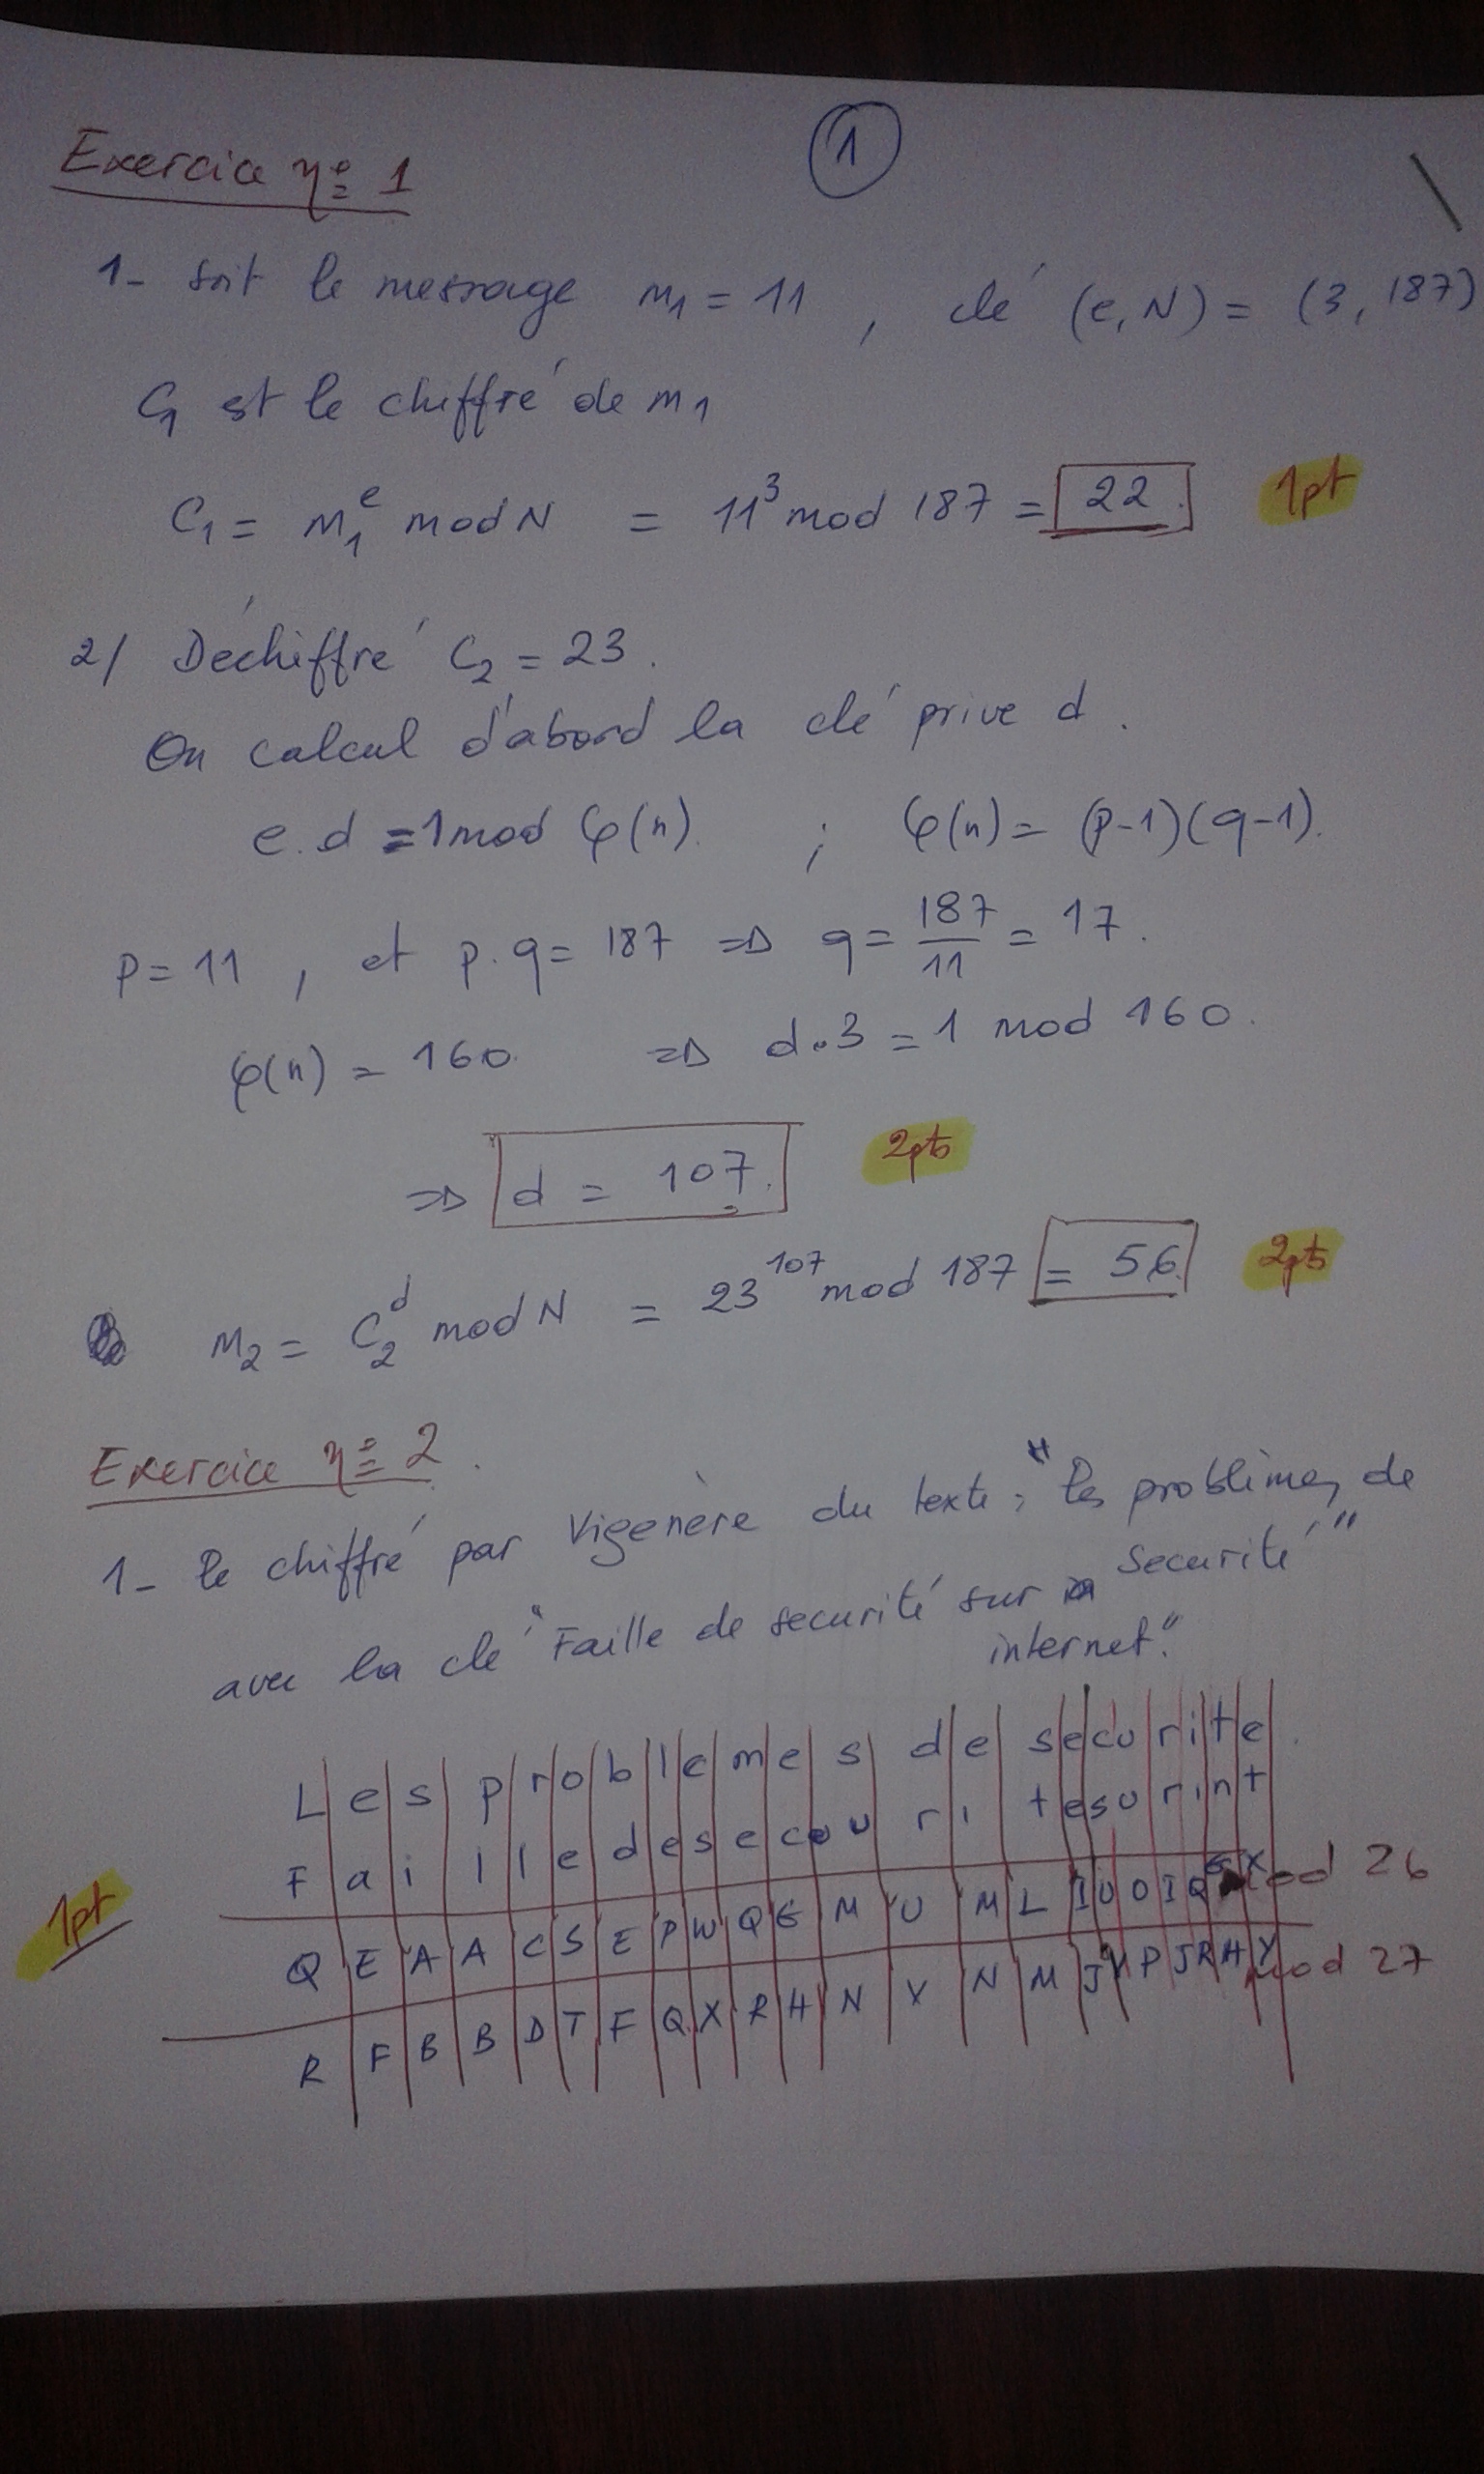 1
Exercice n° 1
1- soit le message m1 = 11 , clé (e,N) = (3, 187)
C1 est le chiffré de m1
C1 = m1^e mod N = 11^3 mod 187 = 22. 1pt
2/ Déchiffré C2 = 23.
On calcul d'abord la clé prive d.
e.d = 1 mod φ(n) ; φ(n) = (p-1)(q-1).
P = 11 , et p.q = 187 => q = 187/11 = 17.
φ(n) = 160. => d.3 = 1 mod 160.
=> d = 107. 2pts
M2 = C2^d mod N = 23^107 mod 187 = 56. 2pts
Exercice n° 2.
1- le chiffré par Vigenère du texte, "les problèmes de
securité"
avec la clé "Faille de securité sur
internet."
L e s p r o b l e m e s d e s e c u r i t e
F a i l l e d e s e c u r i t e s u r i n t
1pt
Q E A A C S E P W Q G M U M L I U O I Q G X mod 26
R F B B D T F Q X R H N V N M J V P J R H Y mod 27